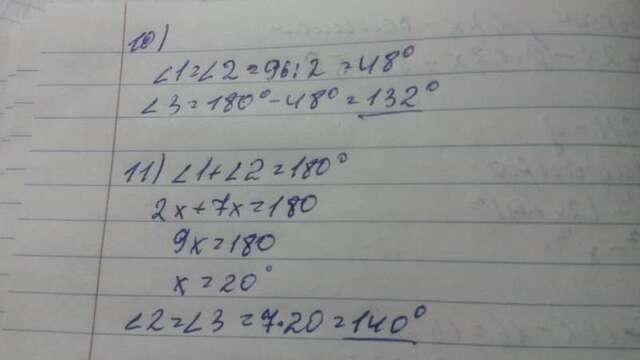 10)
∠1=∠2=96:2=48°
∠3=180°-48°=132°
11) ∠1+∠2=180°
2x+7x=180
9x=180
x=20°
∠2=∠3=7·20=140°